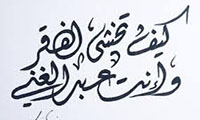 كيف تخشى الفقر
وأنت عبد الغني